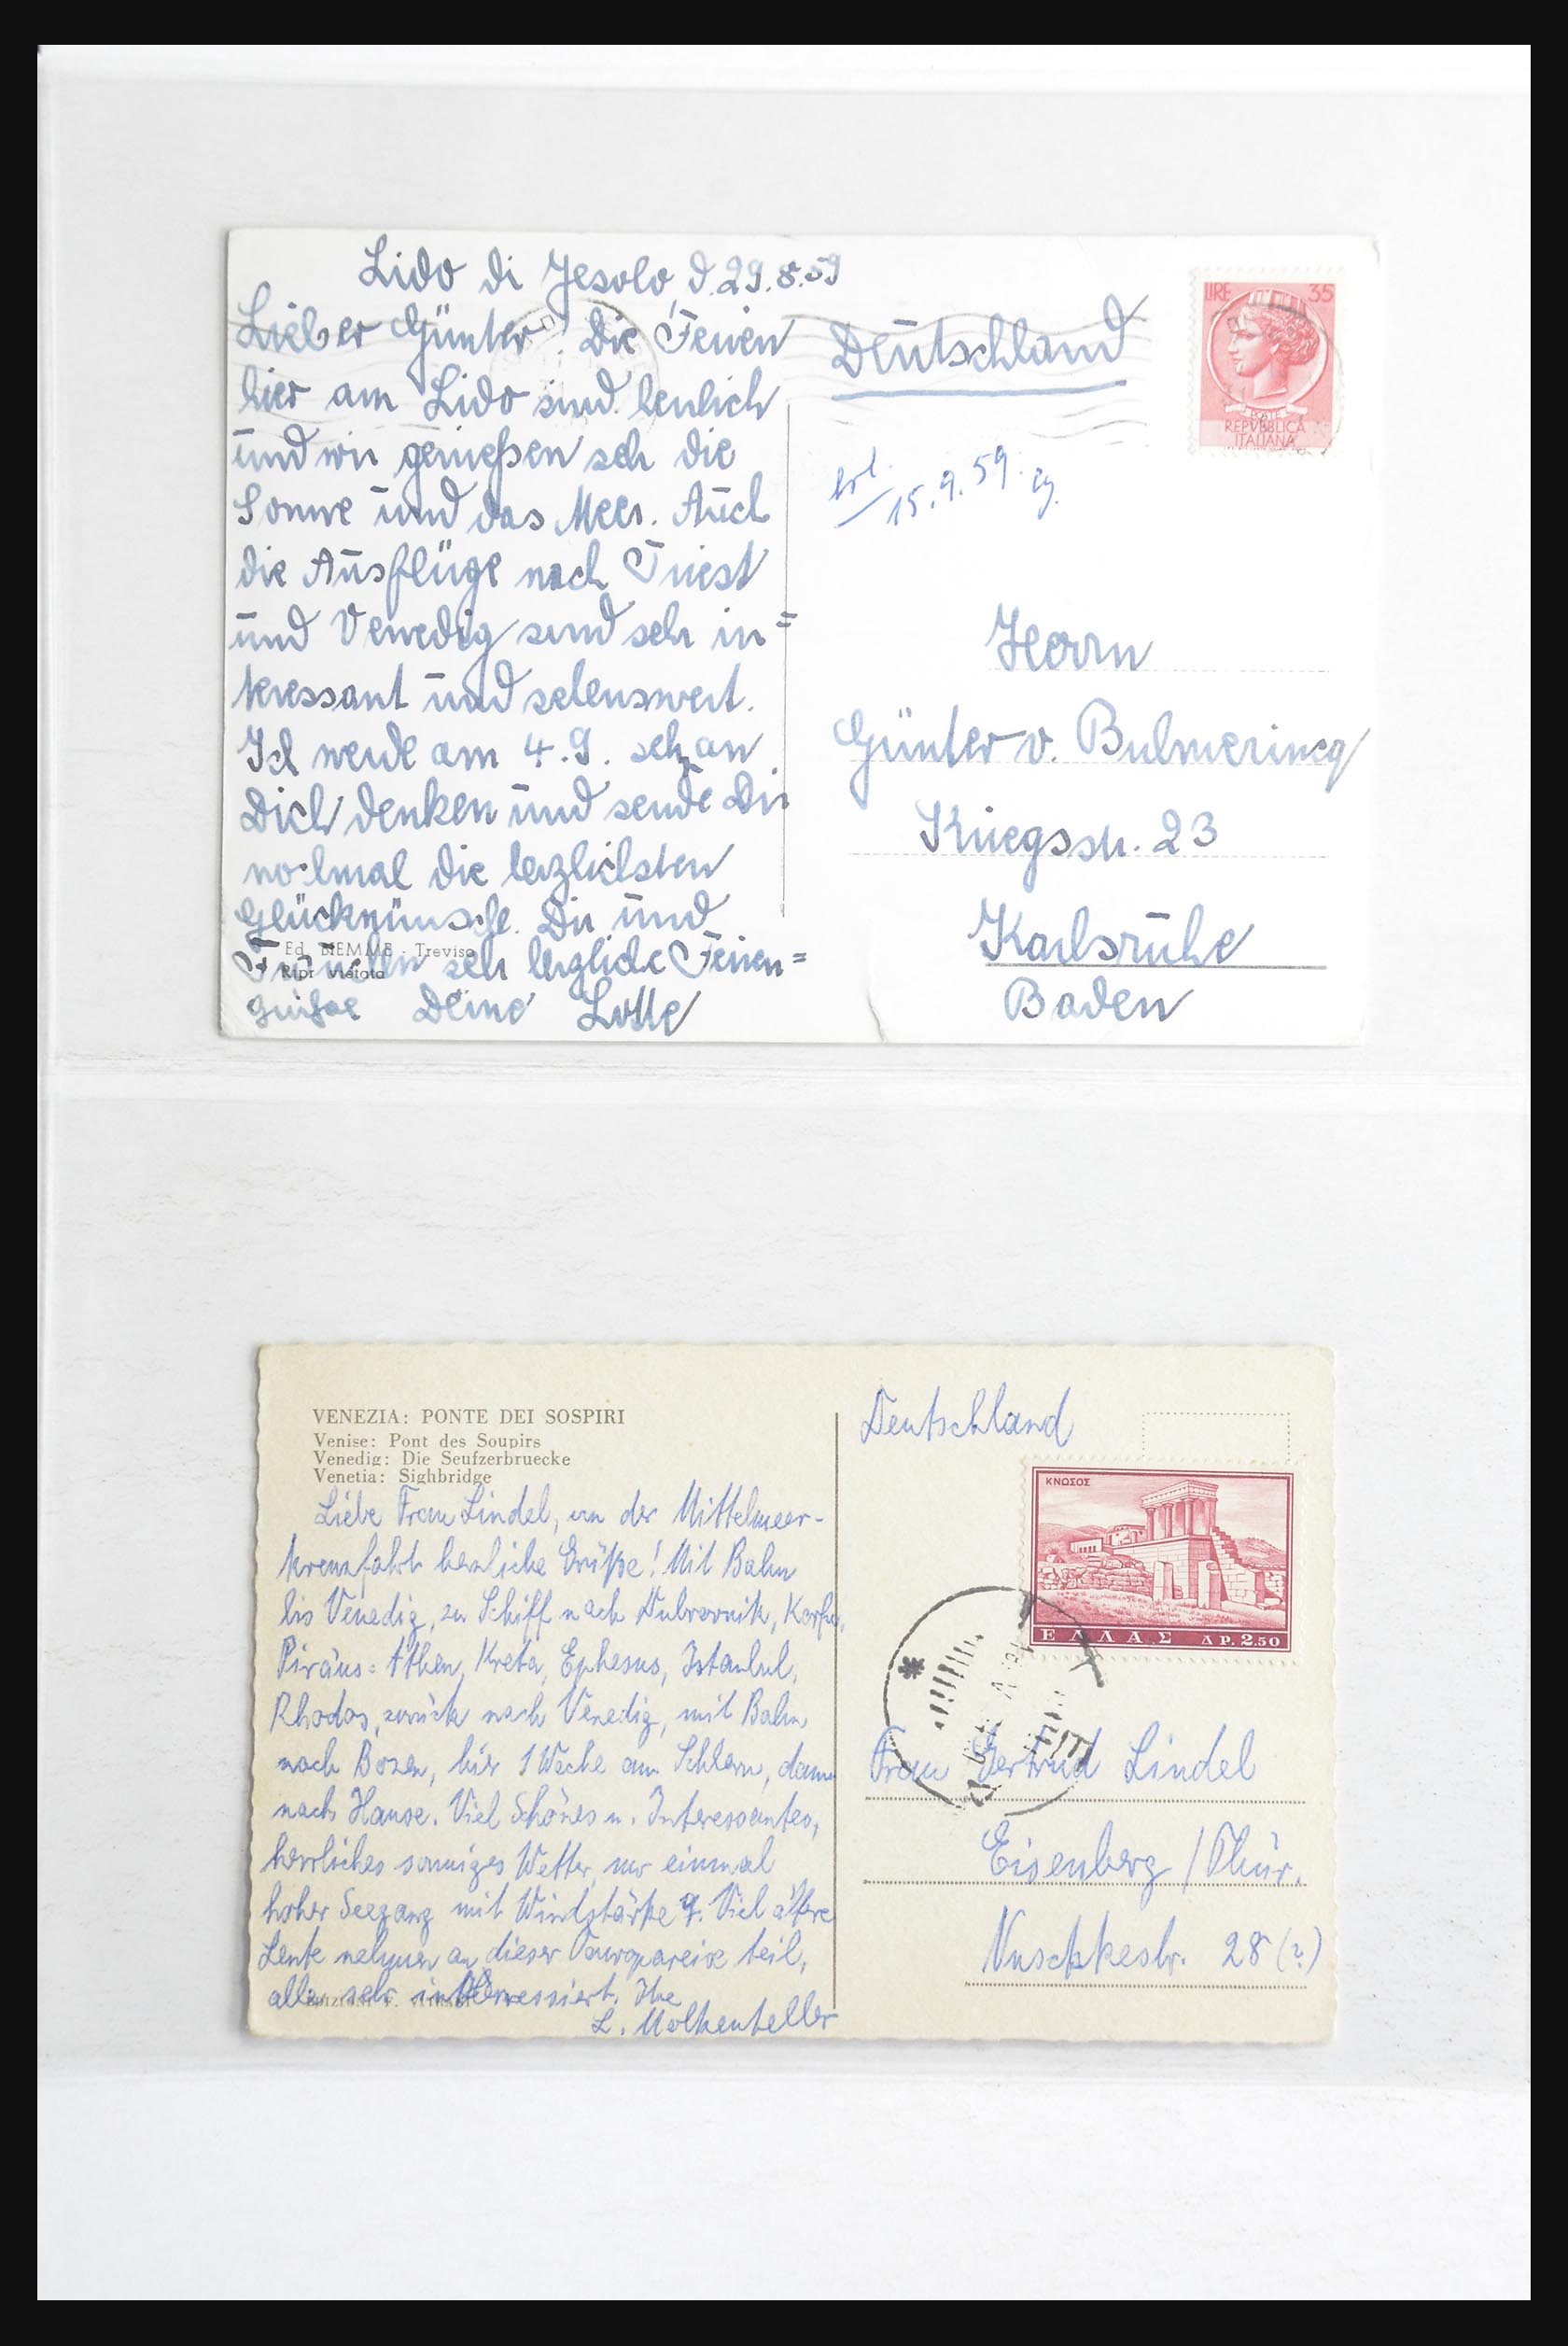 Lido di Jesolo, d. 29.8.59
Lieber Günter! Die Ferien
hier am Lido sind herrlich
und wir genießen sehr die
Sonne und das Meer. Auch
die Ausflüge nach Triest
und Venedig sind sehr in=
teressant und sehenswert.
Ich werde am 4.9. sehr an
Dich denken und sende Dir
nochmal die herzlichsten
Glückwünsche. Dir und
sehr herzliche Ferien=
grüße Deine Lotte
Ed. BIEMME - Treviso
Ripr. vietata
Deutschland
LIRE 35
POSTE
REPVBBLICA
ITALIANA
15.9.59.
Herrn
Günter v. Bulmerincq
Kriegsstr. 23
Karlsruhe
Baden
VENEZIA: PONTE DEI SOSPIRI
Venise: Pont des Soupirs
Venedig: Die Seufzerbruecke
Venetia: Sighbridge
Liebe Frau Lindel, von der Mittelmeer-
kreuzfahrt herzliche Grüße! Mit Bahn
bis Venedig, zu Schiff nach Dubrovnik, Korfu,
Piräus=Athen, Kreta, Ephesus, Istanbul,
Rhodos, zurück nach Venedig, mit Bahn
nach Bozen, hier 1 Woche am Schlern, dann
nach Hause. Viel Schönes u. Interessantes,
herrliches sonniges Wetter, nur einmal
hoher Seegang mit Windstärke 9. Viel ältere
Leute nehmen an dieser Europareise teil,
alle sehr interessiert. Ihre
L. Molkenteller
Deutschland
ΚΝΩΣΟΣ
ΕΛΛΑΣ ΔΡ. 2.50
Frau Gertrud Lindel
Eisenberg / Thür.
28 (?)